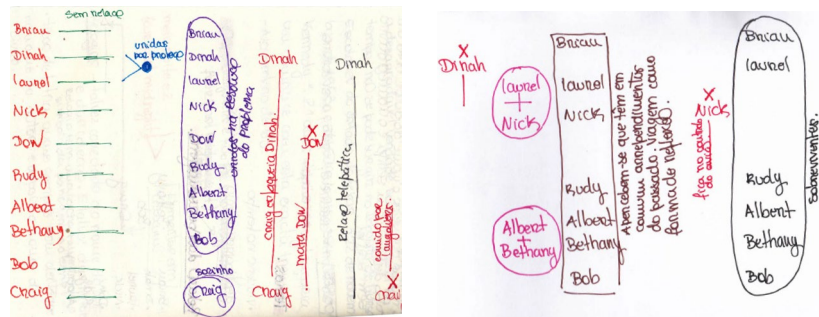 Sem relação
Brian
Dinah
Laurel
Nick
Don
Rudy
Albert
Bethany
Bob
Craig
unidas
por proteção
Brian
Dinah
Laurel
Nick
Don
Rudy
Albert
Bethany
Bob
unidos na resolução
do problema
sozinho
Craig
Dinah
Craig esfaqueia Dinah.
Craig
X
Don
mata Don
Dinah
Relação telepática
comido por
langoliers
X
Crai
X
Dinah
Laurel
+
Nick
Albert
+
Bethany
Brian
Laurel
Nick
Rudy
Albert
Bethany
Bob
Apercebem-se que têm em
comum arrependimentos
do passado. Viagem como
forma de reflexão.
X
Nick
fica no passado
do avião
Brian
Laurel
Rudy
Albert
Bethany
Bob
Sobreviventes.